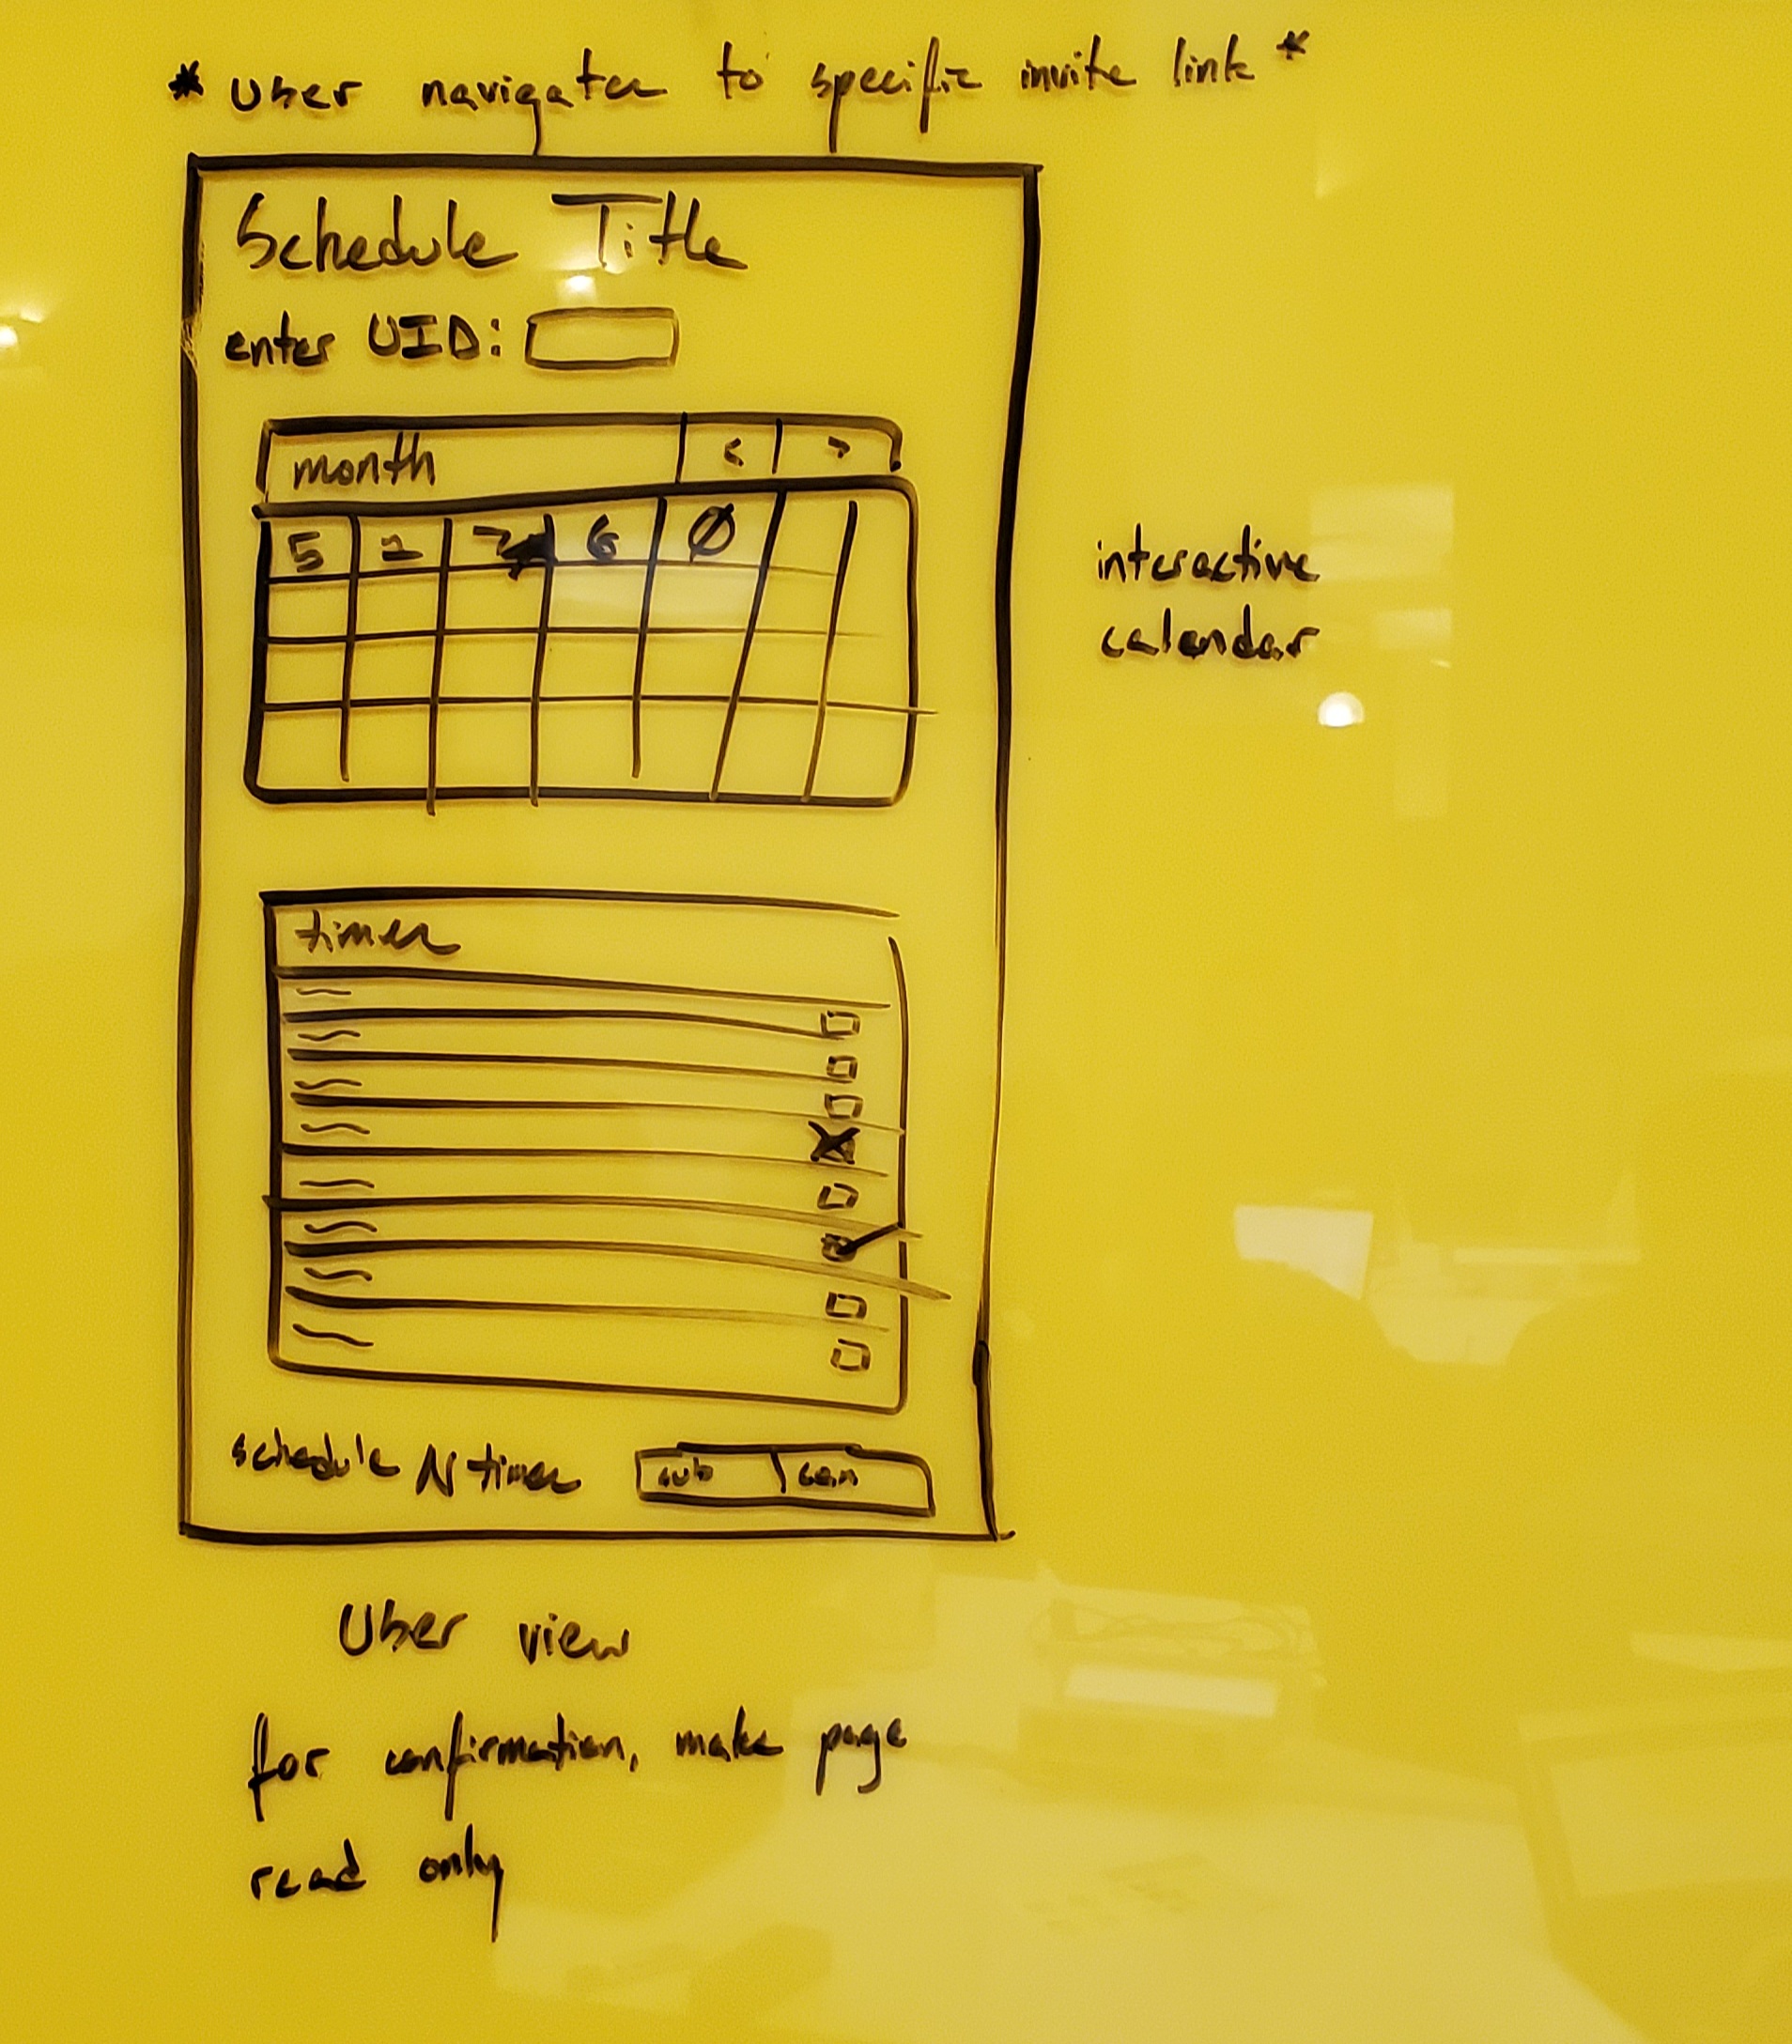 * User navigates to specific invite link *
Schedule Title
enter UID:
month < >
5 2 7 6 Ø
interactive
calendar
times
schedule N times sub can
User view
for confirmation, make page
read only